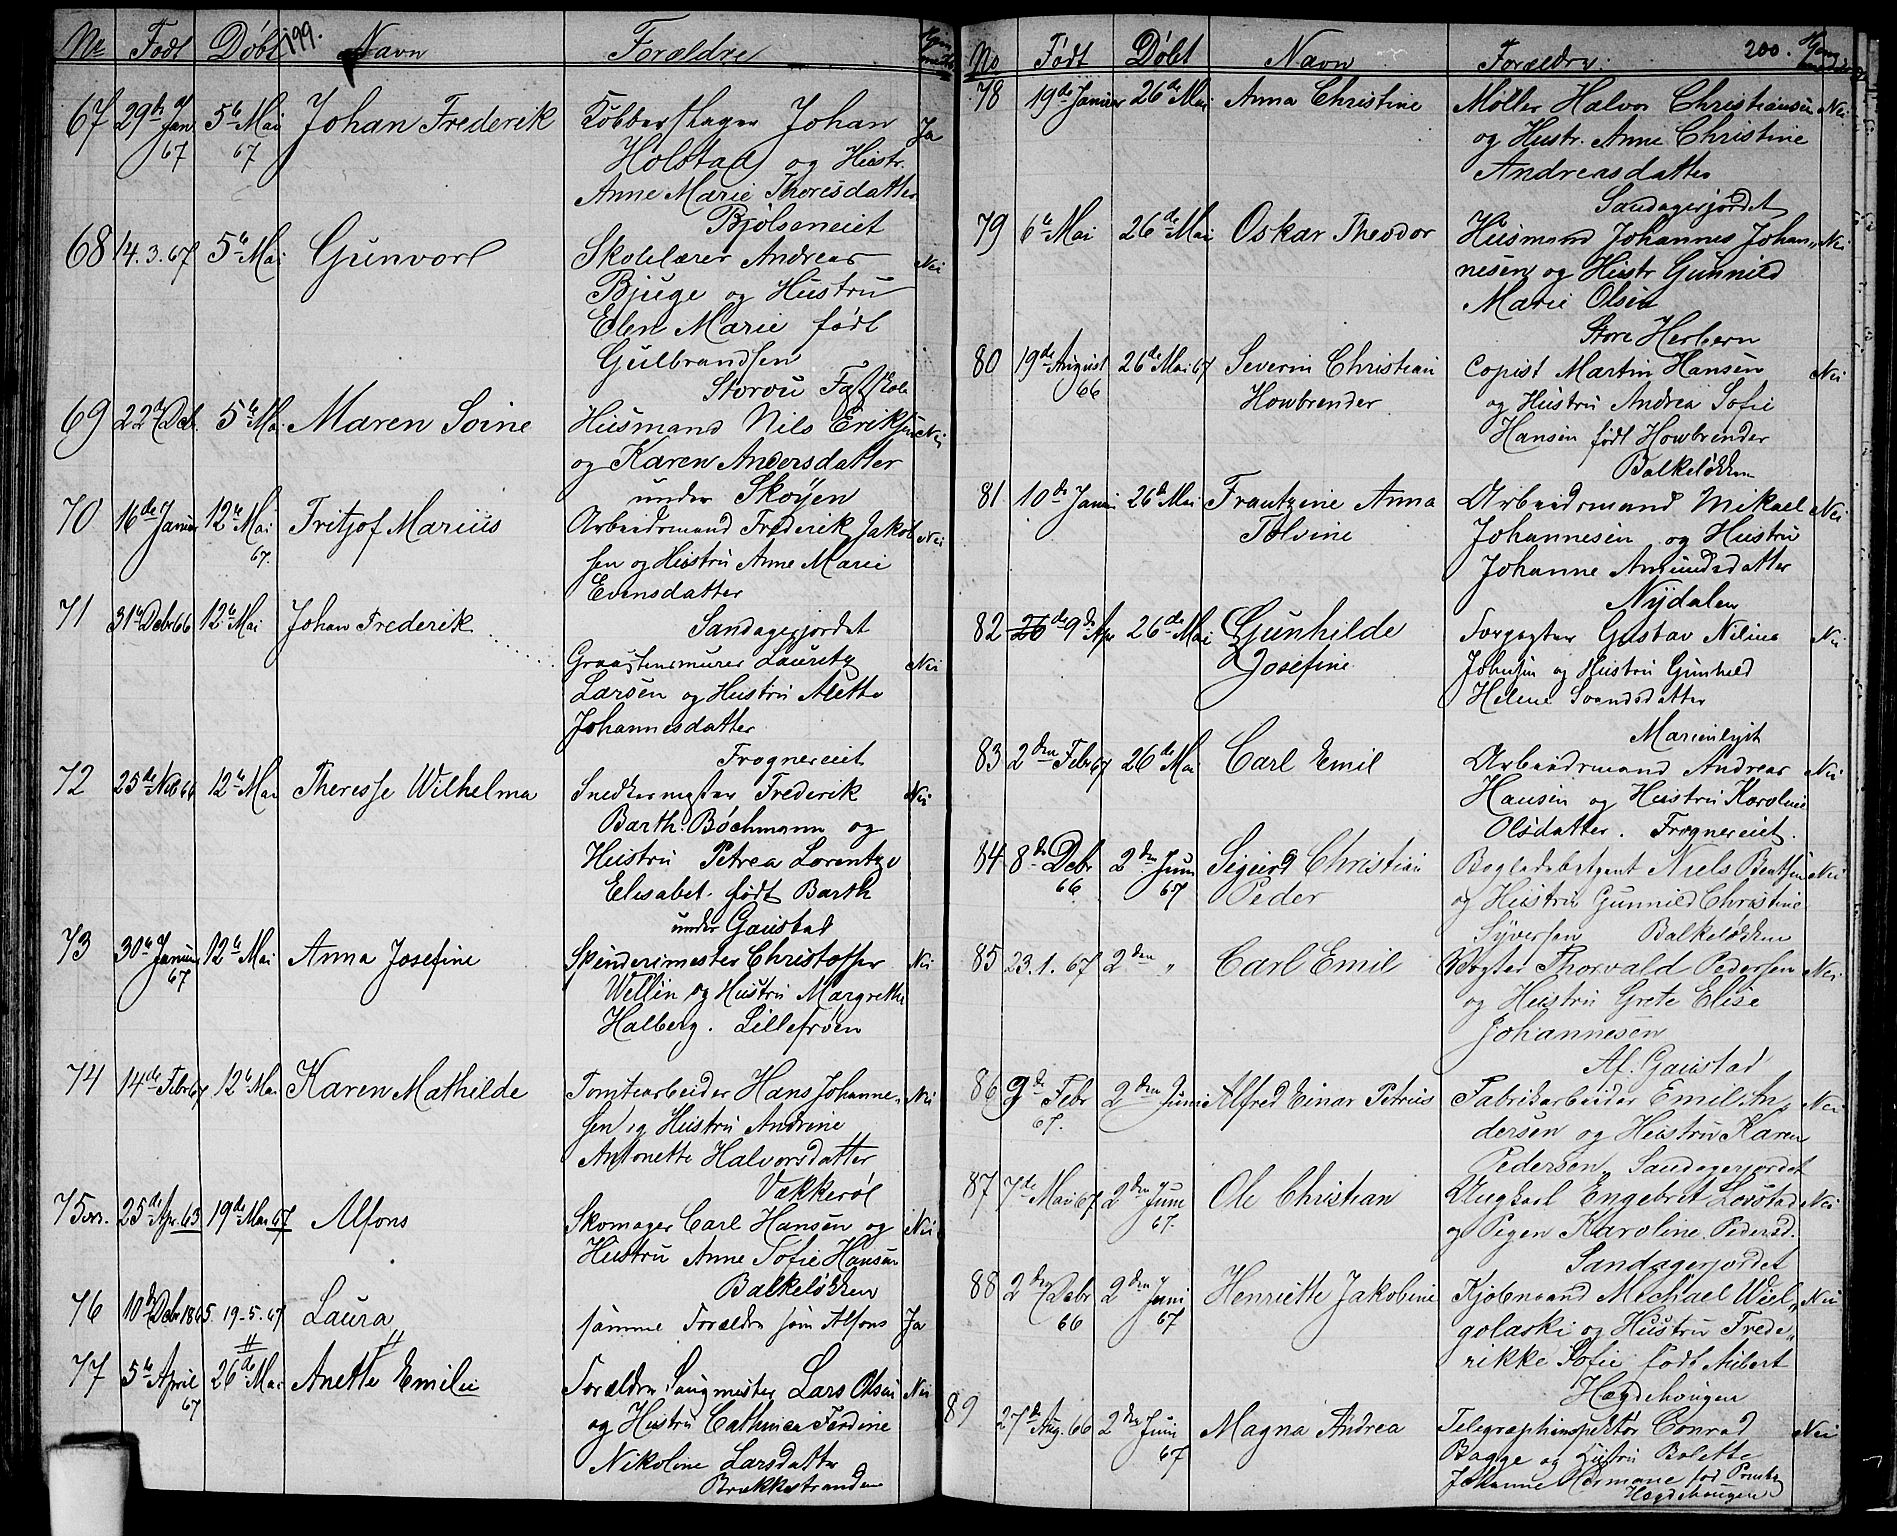 No Født Døbt 199. Navn Forældre
67 29de Jan 67 5te Mai 67 Johan Frederik Kobberslager Johan Ja
Holstad og Hustr.
Anne Marie Thoresdatter
Bjølseneiet
68 14.3.67 5te Mai Gunvorl Skolelærer Andreas Nei
Bjuge og Hustru
Elen Marie født
Gulbrandsen
Storou Fattskole
69 22 Deb. 5te Mai Maren Soine Husmand Nils Eriksen Nei
og Karen Andersdatter
under Skøyen
70 16de Januar 12te Mai 67. Fritjof Marius Arbeidsmand Frederik Jakob Nei
sen og Hustru Anne Marie
Evensdatter
Sandagerjordet
71 31te Debr 66 12te Mai Johan Frederik
Graastensmurer Lauritz Nei
Larsen og Hustru Alette
Johannesdatter
Frognereiet
72 25de Nob 66 12te Mai Theresse Wilhelma Snedkermester Frederik Nei
Barth. Bochmann og
Hustru Petrea Lorentze
Elisabet født Barth
under Gaustad
73 30te Januar 67 12te Mai Anna Josefine Spinderimester Christoffer Nei
Wellin og Hustru Margrethe
Halberg. Lillefrøen
74 14de Febr 67 12te Mai Karen Mathilde Tomtearbeider Hans Johanne- Nei
sen og Hustru Andrine
Antonette Halvorsdatter
Vækkerøl
75 25de Apr. 63 19de Mai 67 Alfons Skomager Carl Hansen og Nei
Hustru Anne Sofie Hansen
Balkeløkken
76 10de Debr 1865. 19-5.67 Laura samme Forældre som Alfons Ja
77 5te April 67 26de Mai Anette Emilie Forældre Saugmester Lars Olsen Nei
og Hustru Cathrica Ferdine
Nikoline Larsdatter
Brækkestranden
No Født Døbt Navn Forældre 200.
78 19de Januar 26de Mai Anna Christine Møller Halvor Christiansen Nei
og Hustr. Anne Christine
Andreasdatter
Sandagerjordet
79 6te Mai 26de Mai Oskar Theodor Husmand Johannes Johan- Nei
nesen og Hustr Gunnild
Marie Olsen
Store Herbern
80 19de August 66 26de Mai 67 Severin Christian Copist Martin Hansen Nei
Howbrender og Hustru Andrea Sofie
Hansen født Howbrender
Balkeløkken
81 10de Januar 26de Mai Frantzene Anna Arbeidsmand Mikael Nei
Tolvine Johannesen og Hustru
Johanne Amundsdatter
Nydalen
82 26de 9de Apr 26de Mai Gunhilde Forpagter Gustav Nilius Nei
Josefine Johnsen og Hustru Gunhild
Helene Svendsdatter
Marienlyst
83 2den Febr 67 26de Mai Carl Emil Arbeidsmand Andreas Nei
Hansen og Hustru Karoline
Olsdatter. Frognereiet.
84 8de Debr 66 2den Juni 67 Sigurd Christian Niels Bentsen Nei
Peder og Hustru Gunnild Christine
Syversen Balkeløkken
85 23.1.67 2den " Carl Emil Vogter Thorvald Pedersen Nei
og Hustru Grete Elise
Johannesen
Af. Gaustad
86 9de Febr 67. 2den Juni Alfred Einar Petrius Fabrikarbeider Emil An- Nei
dersen og Hustru Karen
Pedersen, Sandagerjordet
87 7de Mai 67 2den Juni 67. Ole Christian Ungkarl Engebret Lovstad Nei
og Pigen Karoline Pedersd.
Sandagerjordet
88 2den Debr 66 2den Juni 67 Henriette Jakobine Kjøbmand Michael Wiel- Nei
golaski og Hustru Frede-
rikke Sofie født Aubert
Hægdehougen
89 27de Aug. 66 2den Juni 67 Magna Andrea Telegraphinspektør Conrad Nei
Bagge og Hustru Bolette
Johanne Hermane fød
Hægdehougen